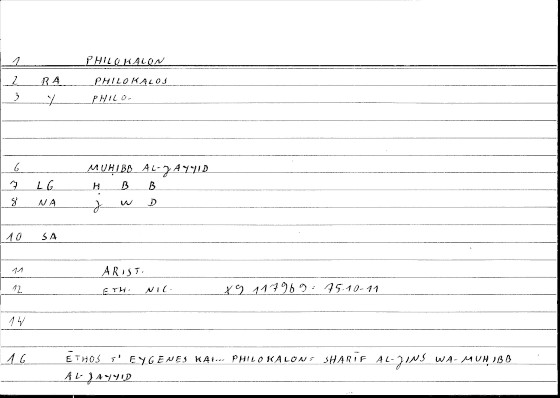 1 PHILOKALON
2 RA PHILOKALOS
3 Y PHILO-
6 MUḤIBB AL-ǧAYYID
7 LG Ḥ B B
8 NA ǧ W D
10 SA
11 ARIST.
12 ETH. NIC. X9 1179b9 = 75.10-11
14
16 ĒTHOS T' EYGENES KAI... PHILOKALON = SHARĪF AL-ǧINS WA-MUḤIBB
AL-ǧAYYID